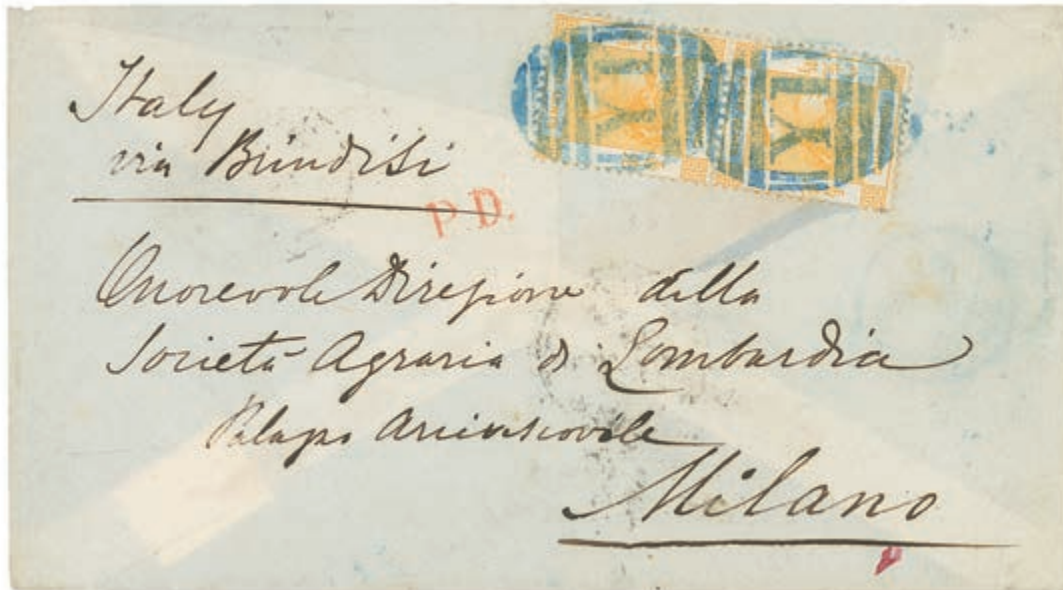 Italy
via Brindisi
Y1 Y1
P.D.
Onorevole Direzione della
Società Agraria di Lombardia
Palazzo Arcivescovile
Milano